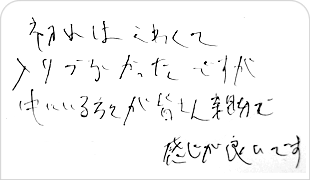 初めは こわくて
入りづらかった ですが
中にいる方々が皆さん親切で
感じが良いです